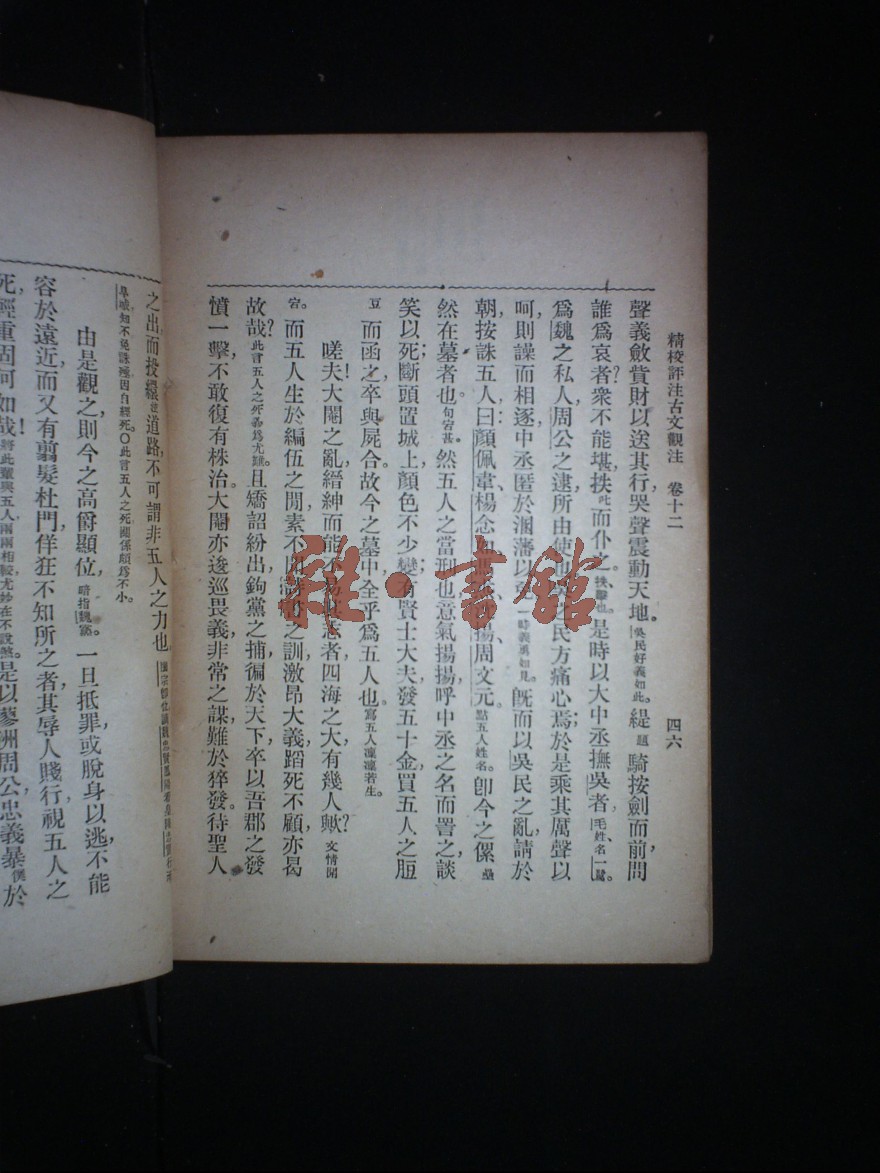 精校評注古文觀注 卷十二 四六
聲義斂貲財以送其行,哭聲震動天地。吳民好義如此。緹題騎按劍而前問
誰爲哀者?衆不能堪,抶叱而仆之。抶,擊也。是時以大中丞撫吳者,毛姓,名一鷺。
爲魏之私人,周公之逮所由使也,吳之民方痛心焉,於是乘其厲聲以
呵,則譟而相逐,中丞匿於溷藩以 一時義勇如見。旣而以吳民之亂請於
朝,按誅五人,曰:顏佩韋、楊念如、馬 揚、周文元。點五人姓名。卽今之傫壘
然在墓者也。句宕甚。然五人之當刑也,意氣揚揚,呼中丞之名而詈之,談
笑以死;斷頭置城上,顏色不少變。有賢士大夫發五十金,買五人之脰
豆而函之,卒與屍合。故今之墓中全乎爲五人也。寫五人凜凜若生。
嗟夫!大閹之亂,縉紳而能不易其志者,四海之大,有幾人歟?文情開
宕。而五人生於編伍之閒,素不聞詩書之訓,激昂大義,蹈死不顧,亦曷
故哉?此言五人之死義爲尤難。且矯詔紛出,鉤黨之捕,徧於天下,卒以吾郡之發
憤一擊,不敢復有株治。大閹亦逡巡畏義,非常之謀,難於猝發。待聖人
之出,而投繯 道路,不可謂非五人之力也。
阜城,知不免誅殛,因自經死。〇此言五人之死,關係頗爲不小。
由是觀之,則今之高爵顯位,暗指魏黨。一旦抵罪,或脫身以逃,不能
容於遠近,而又有翦髮杜門,佯狂不知所之者,其辱人賤行,視五人之
死,輕重固何如哉!將此輩與五人兩兩相較,尤妙在不說煞。是以蓼洲周公,忠義暴僕於